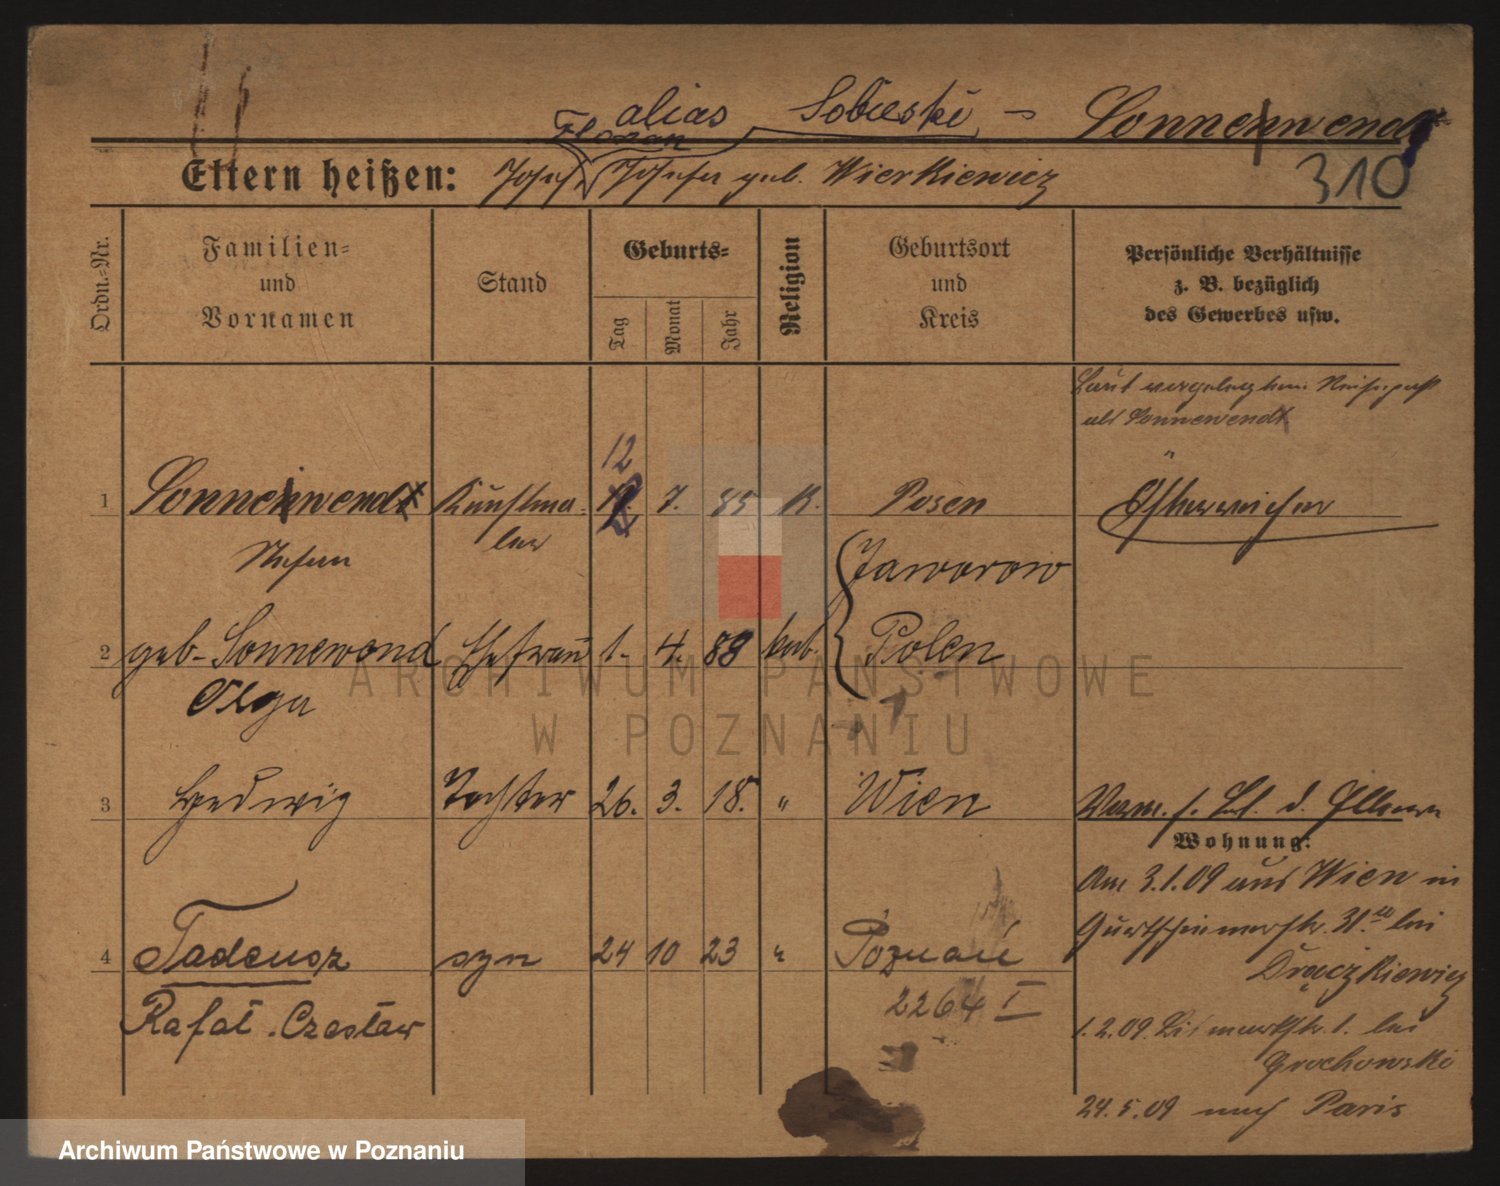 alias Sobieski - Sonnenwend
Florian
Eltern heißen: Josef, Josefa geb. Wierkiewicz
310
Ordn.-Nr.
Familien-
und
Vornamen
Stand
Geburts-
Tag
Monat
Jahr
Religion
Geburtsort
und
Kreis
Persönliche Verhältnisse
z. B. bezüglich
des Gewerbes usw.
Laut vorgelegtem Reisepaß
als Sonnewendt
12
1 Sonnenwendt Kunstma- 7. 85 K. Posen Österreicher
ler
Stefan
Jaworow
2 geb. Sonnewend Ehefrau 1. 4. 88 kat. Polen
Olga
3 Hedwig Tochter 26. 3. 18. " Wien
Wohnung:
Am 3.1.09 aus Wien in
Gurtschinerstr. 31 bei
Drączkiewicz
4 Tadeusz syn 24 10 23 " Poznań
Rafał Czesław
2264 I
1.2.09. Bismarkstr. 1. bei
Grochowski
24.5.09 nach Paris
ARCHIWUM PAŃSTWOWE
W POZNANIU
Archiwum Państwowe w Poznaniu